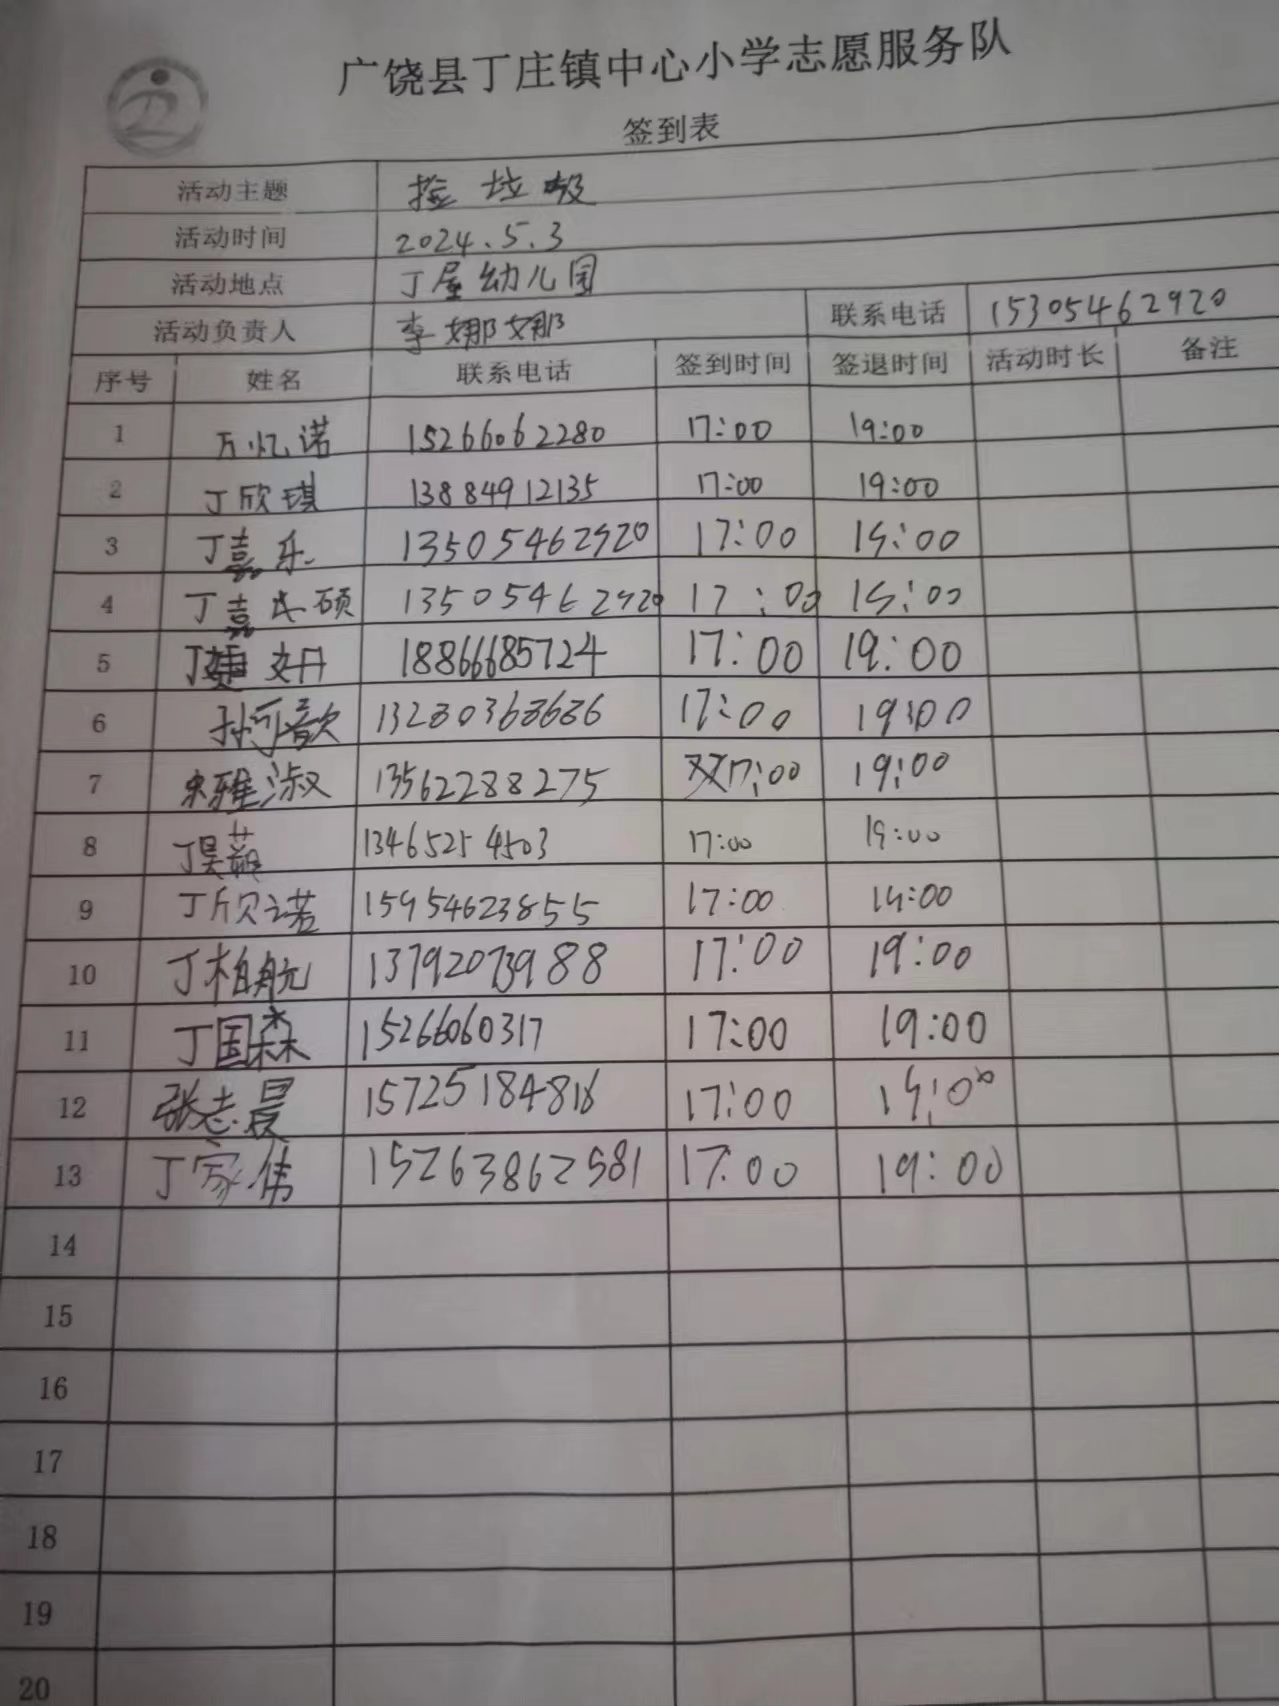 广饶县丁庄镇中心小学志愿服务队
签到表
活动主题 捡垃圾
活动时间 2024.5.3
活动地点 丁屋幼儿园
活动负责人 李娜娜 联系电话 15305462920
序号 姓名 联系电话 签到时间 签退时间 活动时长 备注
1 万忆诺 15266062280 17:00 19:00
2 丁欣琪 13884912135 17:00 19:00
3 丁嘉乐 13505462920 17:00 19:00
4 丁嘉硕 13505462920 17:00 19:00
5 丁 18866685724 17:00 19:00
6 孙可歆 13280368686 17:00 19:00
7 雅淑 13562288275 17:00 19:00
8 丁昊 13465254503 17:00 19:00
9 丁欣诺 15954623855 17:00 19:00
10 丁柏航 13792073988 17:00 19:00
11 丁国森 15266060317 17:00 19:00
12 张志晨 15725184816 17:00 19:00
13 丁家伟 15263862581 17:00 19:00
14
15
16
17
18
19
20